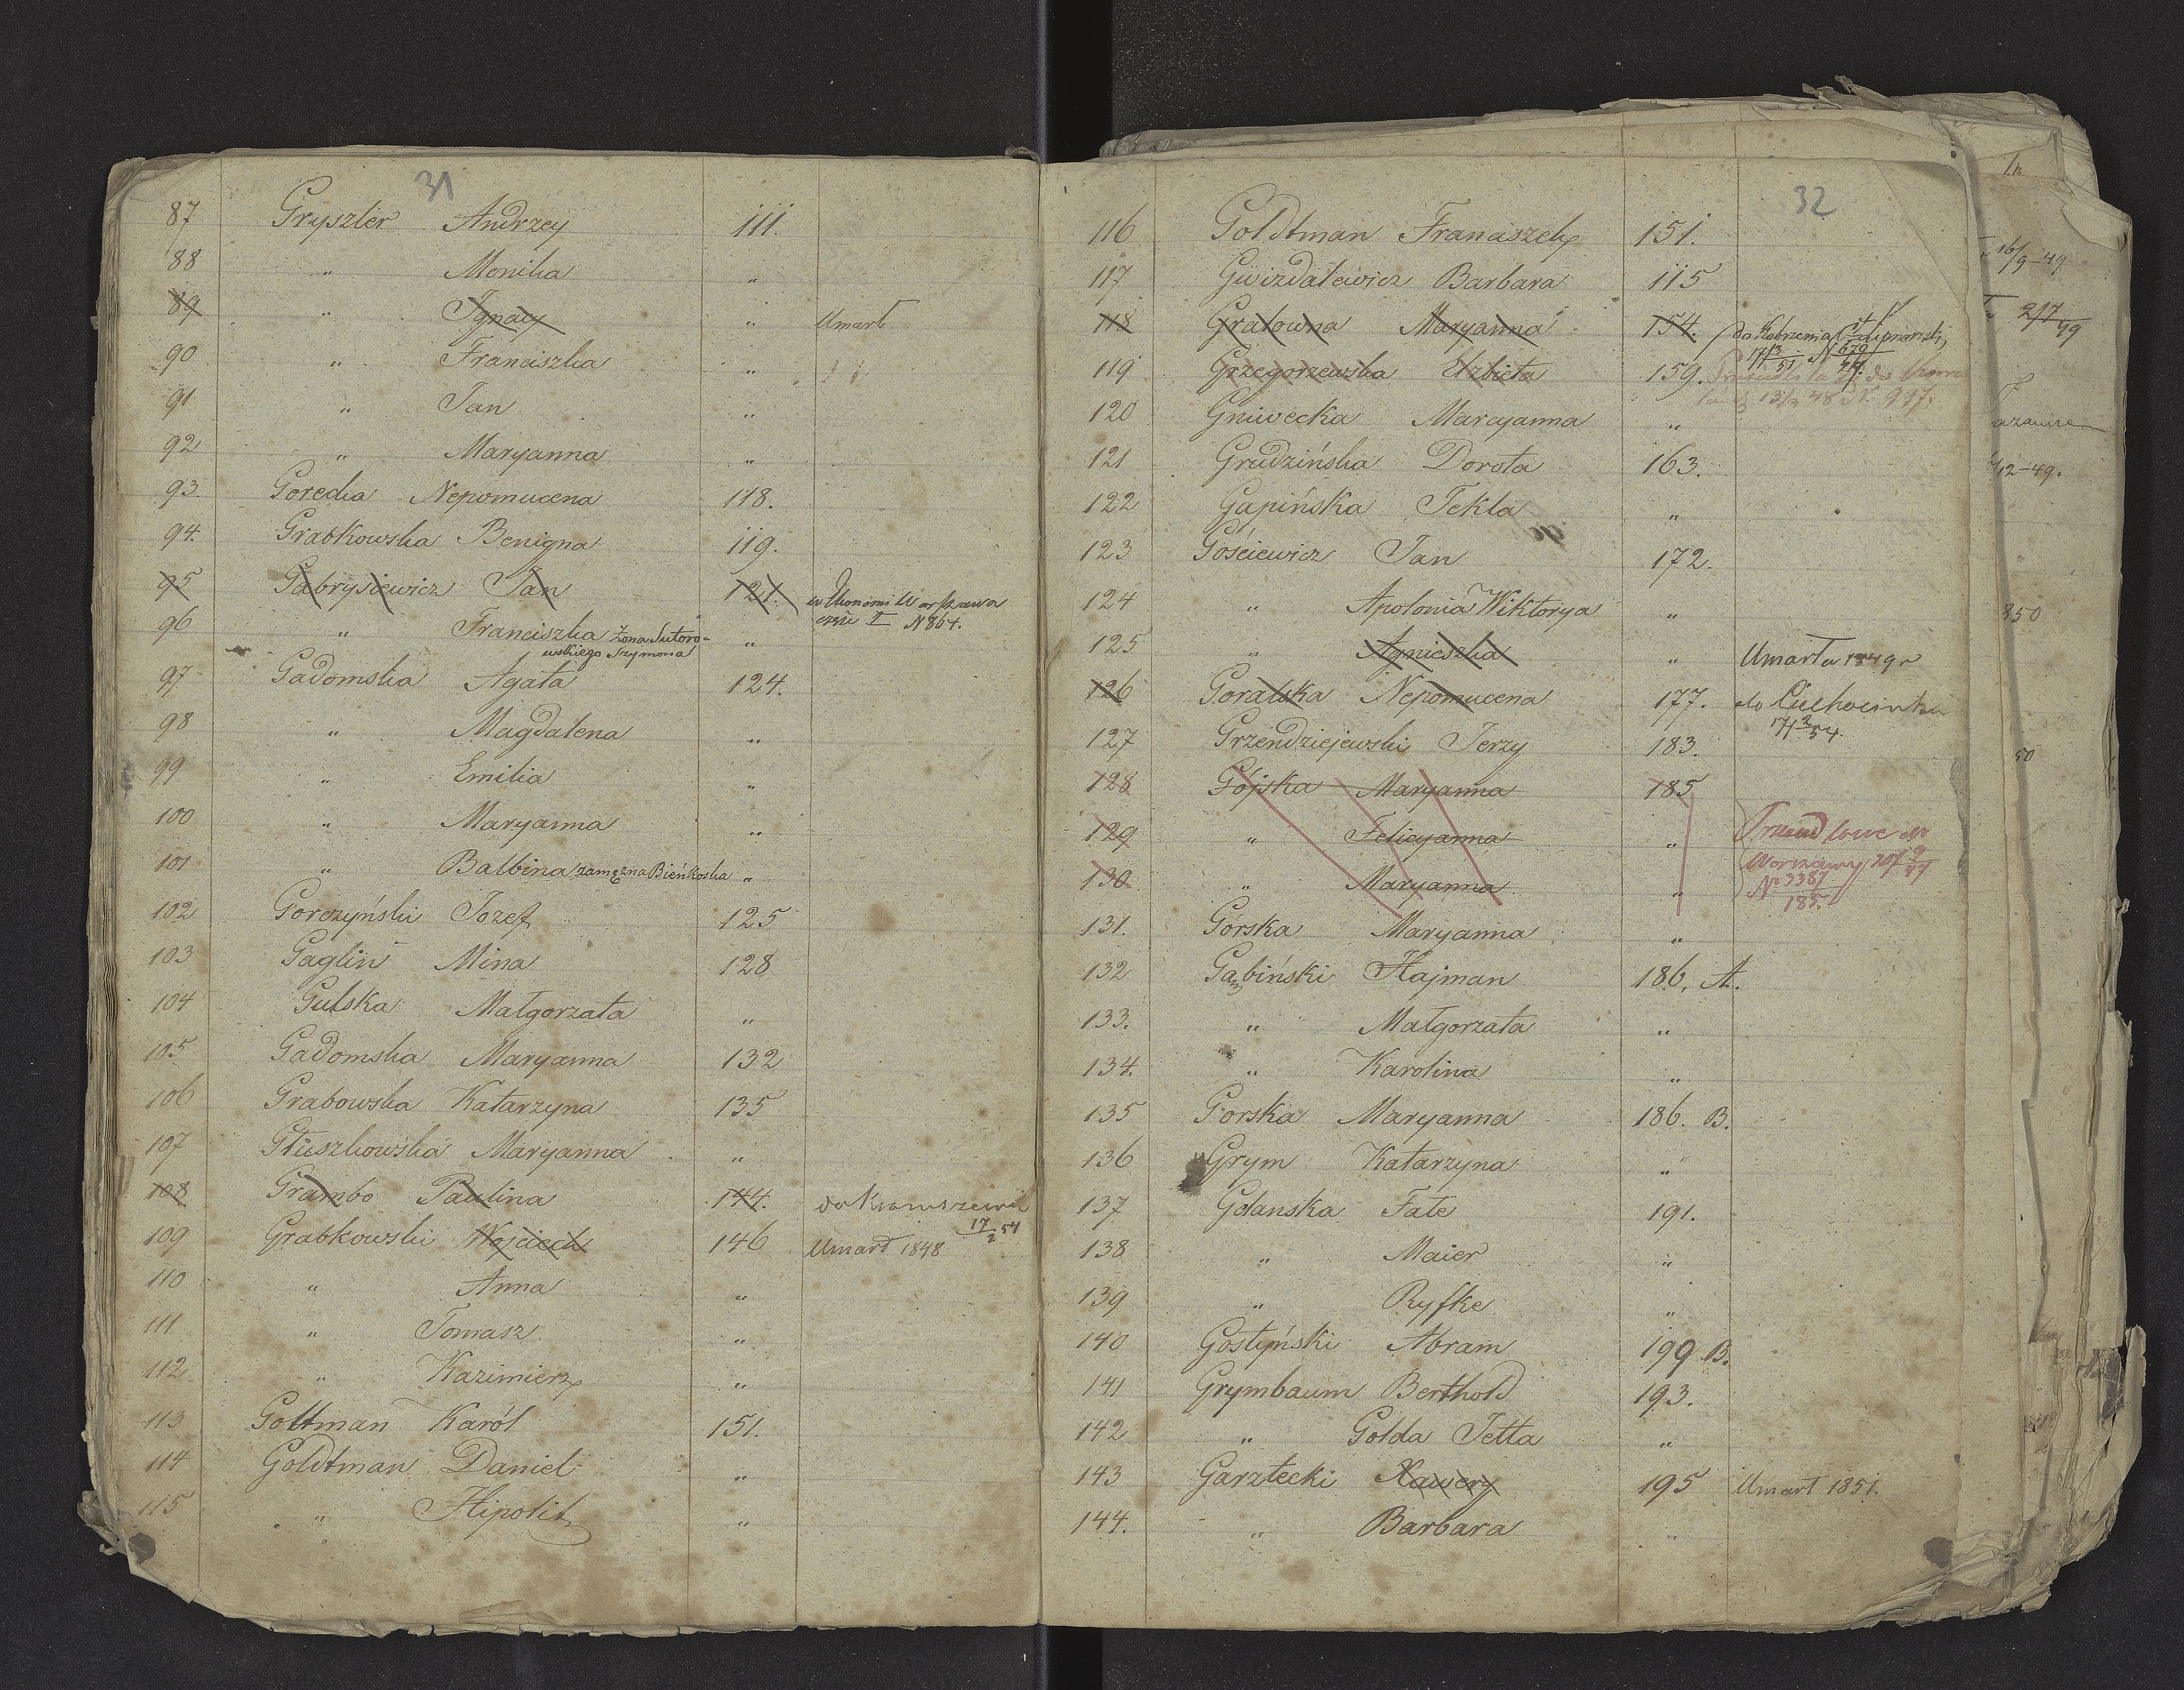 31
87 Gryszler Andrzey 111.
88 " Monika "
89 " Ignacy " Umarł
90 " Franciszka "
91 " Jan "
92 " Maryanna "
93. Gorecka Nepomucena 118.
94. Grabkowska Benigna 119.
95 Gabrysiewicz Jan 121. Warszawa
96 " Franciszka Żona Sutoro= " II N 864.
wskiego Szymona
97 Gadomska Agata 124.
98 " Magdalena "
99 " Emilia "
100 " Maryanna "
101 " Balbina zamężna Bieńkoska "
102 Gorczyński Jozef 125
103 Gaglin Mina 128
104 Gulska Małgorzata "
105 Gadomska Maryanna 132
106 Grabowska Katarzyna 135
107 Głuszkowska Maryanna "
108 Grambo Paulina 144. do
17/2 54
109 Grabkowski Wojciech 146 Umarł 1848
110 " Anna "
111 " Tomasz "
112 " Kazimierz "
113 Goltman Karól 151.
114 Goldtman Daniel "
115 " Hipolit "
32
116 Goldtman Franciszek 151.
117 Gwizdalewicz Barbara 115
118 Gralowna Maryanna 154. do
119 Grzegorzewska Elzbieta 159.
120 Gniwecka Marcyanna "
121 Grudzińska Dorota 163.
122 Gapińska Tekla "
123 Gościewicz Jan 172.
124 " Apolonia Wiktorya "
125 " Agnieszka " Umarła 1849 r
126 Goralska Nepomucena 177. do Ciechocinka
17/2 54.
127 Grzendziejewski Jerzy 183.
128 Gójska Maryanna 185
129 " Felicyanna " do
130 " Maryanna " Warszawy
No 3387
185.
131. Górska Maryanna "
132 Gąbiński Hajman 186. A.
133. " Małgorzata "
134. " Karolina "
135 Gorska Maryanna 186. B.
136 Grym Katarzyna "
137 Gdanska Fale 191.
138 " Maier "
139 " Ryfke "
140 Gostyński Abram 199 B.
141 Grymbaum Berthold 193.
142 " Golda Jetta "
143 Garztecki Xawery 195 Umarł 1851.
144. " Barbara "
16/9-49
2/7 49
/12-49.
850
50